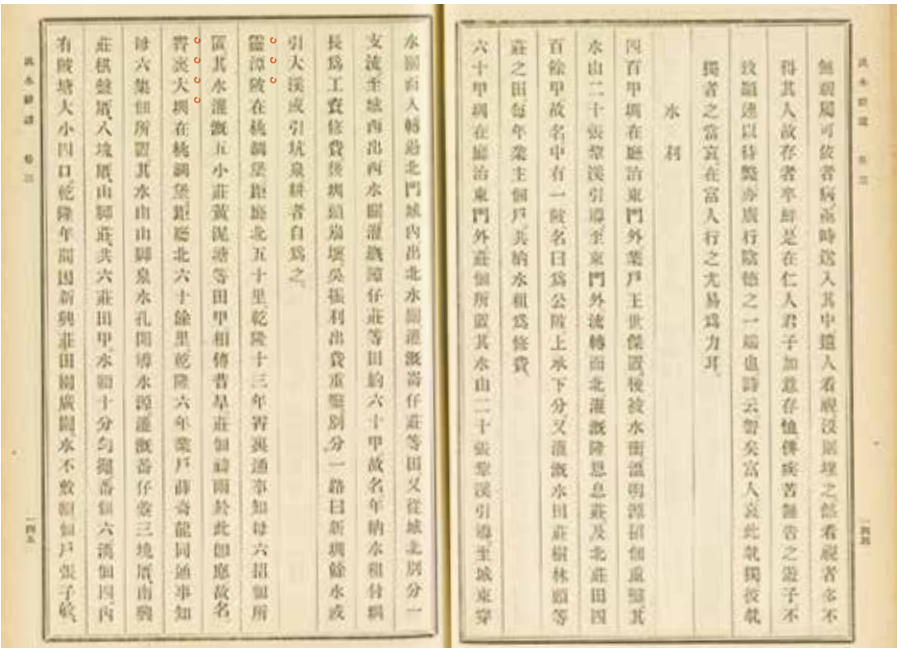 淡水廳志 卷三
無親屬可依者病亟時送入其中遣人看視沒則埋之然看視者多不
得其人故存者卒鮮是在仁人君子加意存恤俾疾苦無告之遊子不
致顛連以待斃亦廣行陰德之一端也詩云哿矣富人哀此煢獨彼煢
獨者之當哀在富人行之尤易爲力耳
水利
四百甲圳在廳治東門外業戶王世傑置後被水衝溫明源招佃重墾其
水山二十張犁溪引導至東門外流轉而北灌溉隆恩息莊及北莊田四
百餘甲故名中有一陂名曰爲公陂上承下分又灌溉水田莊樹林頭等
莊之田每年業主佃戶共納水租爲修費
六十甲圳在廳治東門外莊佃所置其水山二十張犁溪引導至城東穿
一四四
水關而入轉過北門城內出北水關灌溉崙仔莊等田又從城北別分一
支流至城西出西水關灌溉漳仔莊等田約六十甲故名年納水租付圳
長爲工資修費後圳頭崩壞吳振利出費重墾別分一路曰新圳餘水或
引大溪或引坑泉耕者自爲之
靈潭陂在桃澗堡距廳北五十里乾隆十三年霄裏通事知母六招佃所
置其水灌溉五小莊黃泥塘等田甲相傳昔旱莊佃禱雨於此卽應故名
霄裏大圳在桃澗堡距廳北六十餘里乾隆六年業戶薛奇龍同通事知
母六集佃所置其水山山腳泉水孔開導水源灌溉番仔寮三塊厝南興
莊棋盤厝八塊厝山腳莊共六莊田甲水額十分勻攤番佃六漢佃四內
有陂塘大小四口乾隆年間因新興莊田園廣闊水不敷額佃戶張子敏
淡水廳志 卷三
一四五